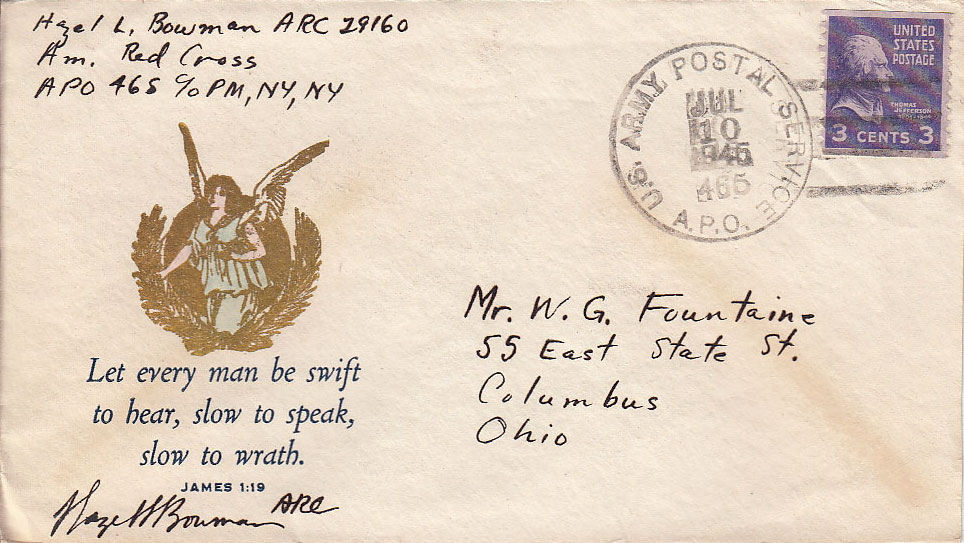 Hazel L. Bowman ARC 29160
Am. Red Cross
APO 465 c/o PM, NY, NY
U.S. ARMY POSTAL SERVICE
JUL
10
1945
465
A.P.O.
UNITED
STATES
POSTAGE
THOMAS
JEFFERSON
3 CENTS 3
Mr. W. G. Fountaine
55 East State St.
Columbus
Ohio
Let every man be swift
to hear, slow to speak,
slow to wrath.
JAMES 1:19
Hazel Bowman ARC